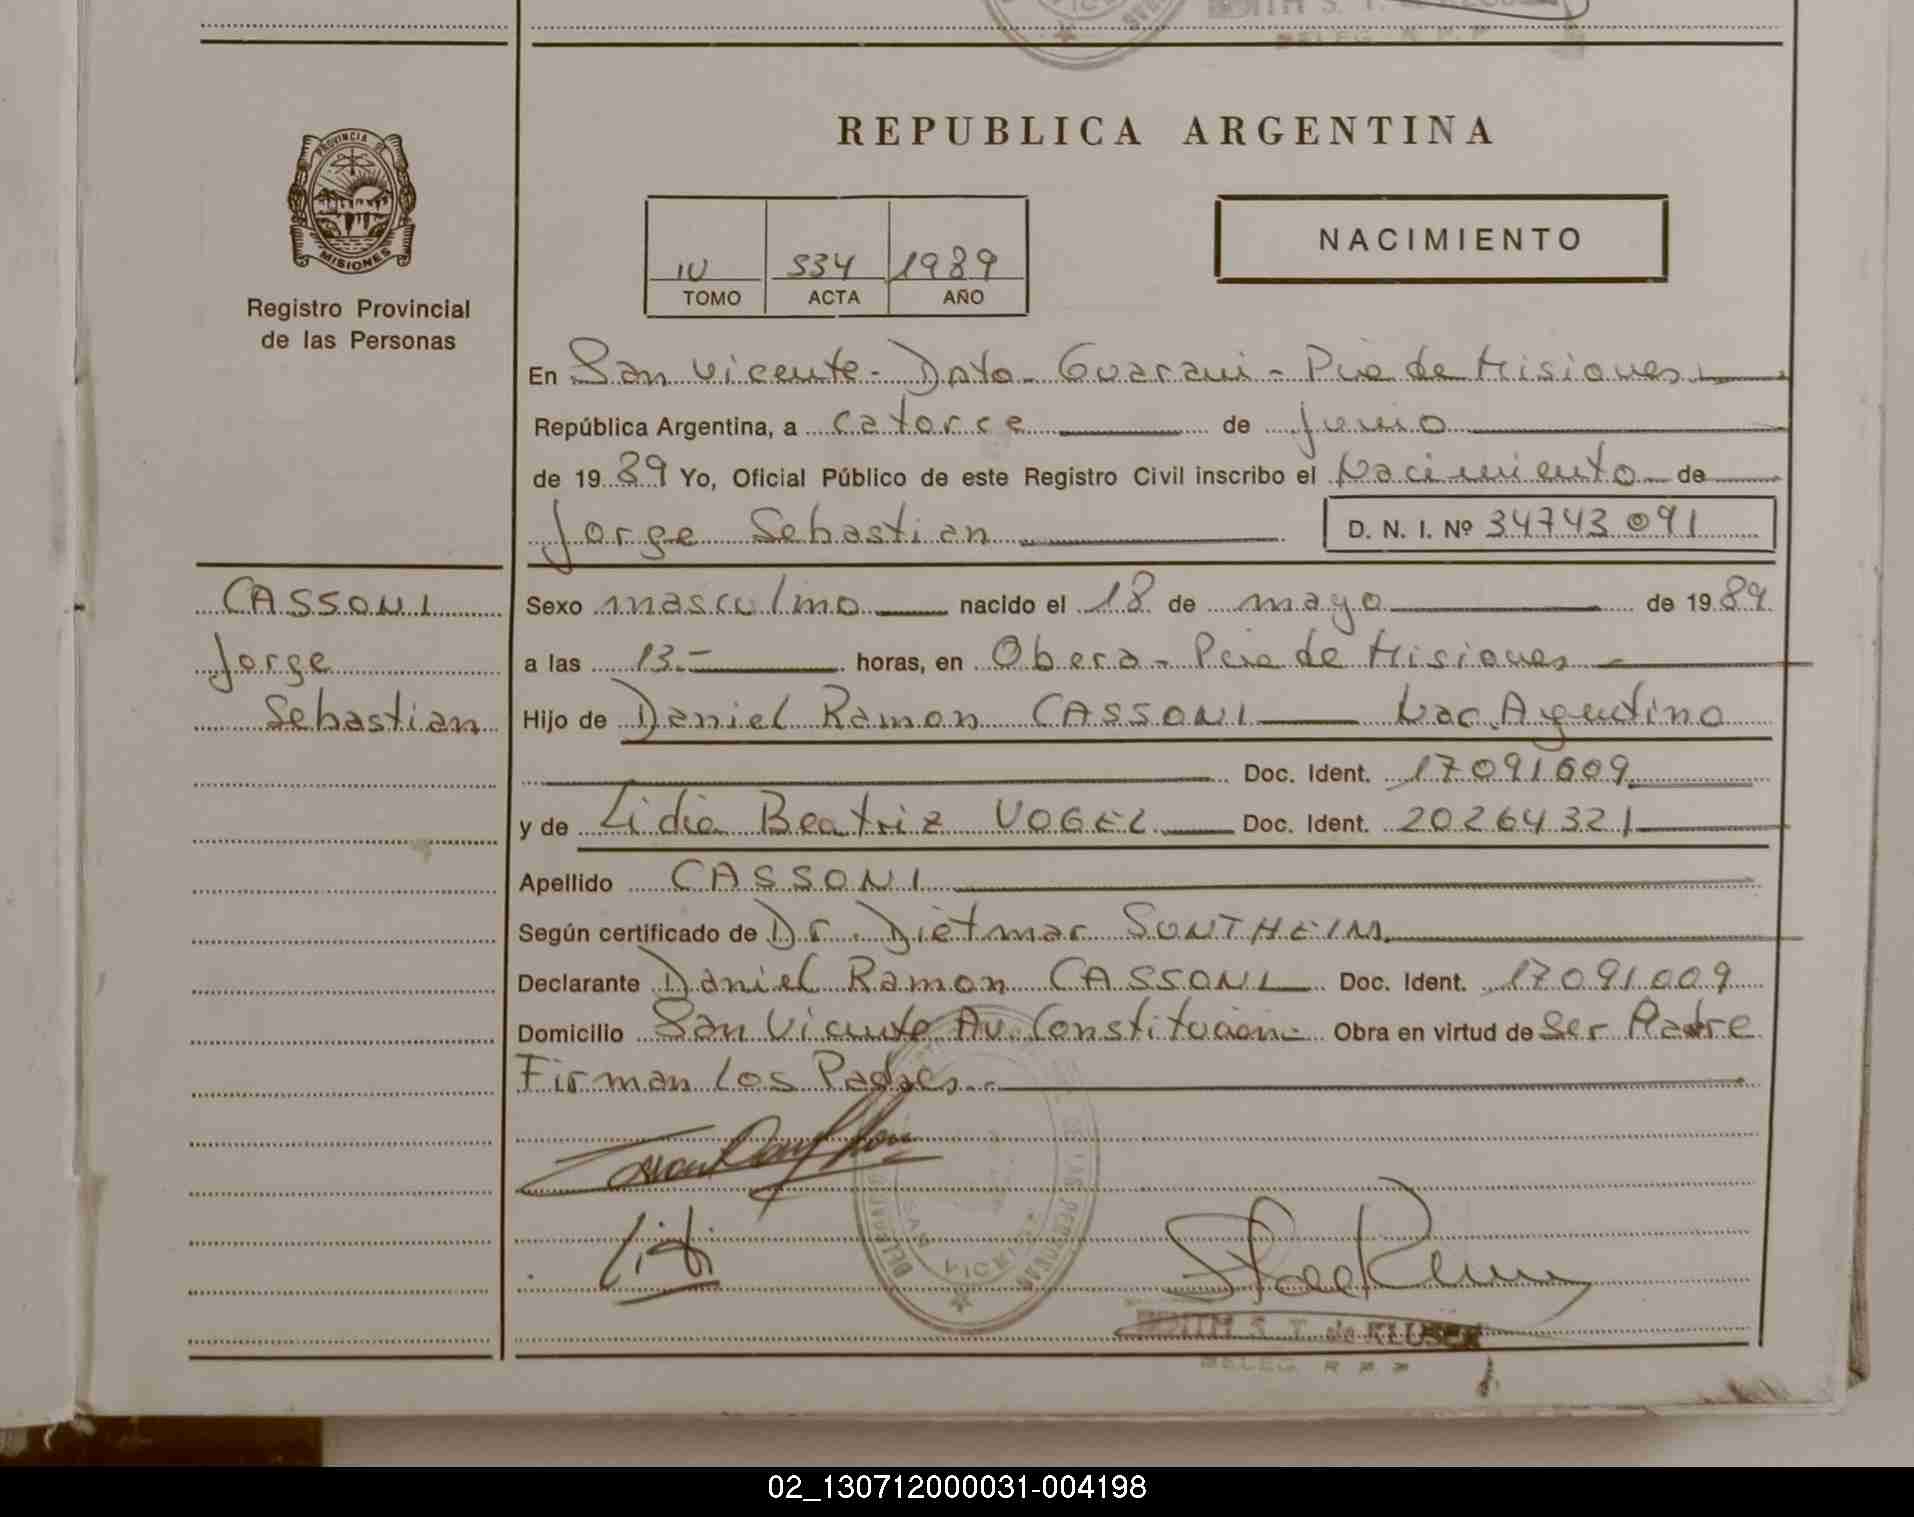 REPUBLICA ARGENTINA
PROVINCIA DE
MISIONES
Registro Provincial
de las Personas
IV 534 1989
TOMO ACTA AÑO
NACIMIENTO
En San Vicente - Dpto - Guarani - Pcia de Misiones
República Argentina, a catorce de junio
de 1989 Yo, Oficial Público de este Registro Civil inscribo el Nacimiento de
Jorge Sebastian D. N. I. Nº 34743091
CASSONI
Jorge
Sebastian
Sexo masculino nacido el 18 de mayo de 1989
a las 13.- horas, en Obera - Pcia de Misiones
Hijo de Daniel Ramon CASSONI Nac. Argentino
Doc. Ident. 17091009
y de Lidia Beatriz VOGEL Doc. Ident. 20264321
Apellido CASSONI
Según certificado de Dr. Dietmar SONTHEIM
Declarante Daniel Ramon CASSONI Doc. Ident. 17091009
Domicilio San Vicente Av. Constitucion - Obra en virtud de Ser Padre
Firman los Padres.-
SAN VICENTE
EDITH S. T. de KLUSER
DELEG. R P P
02_130712000031-004198